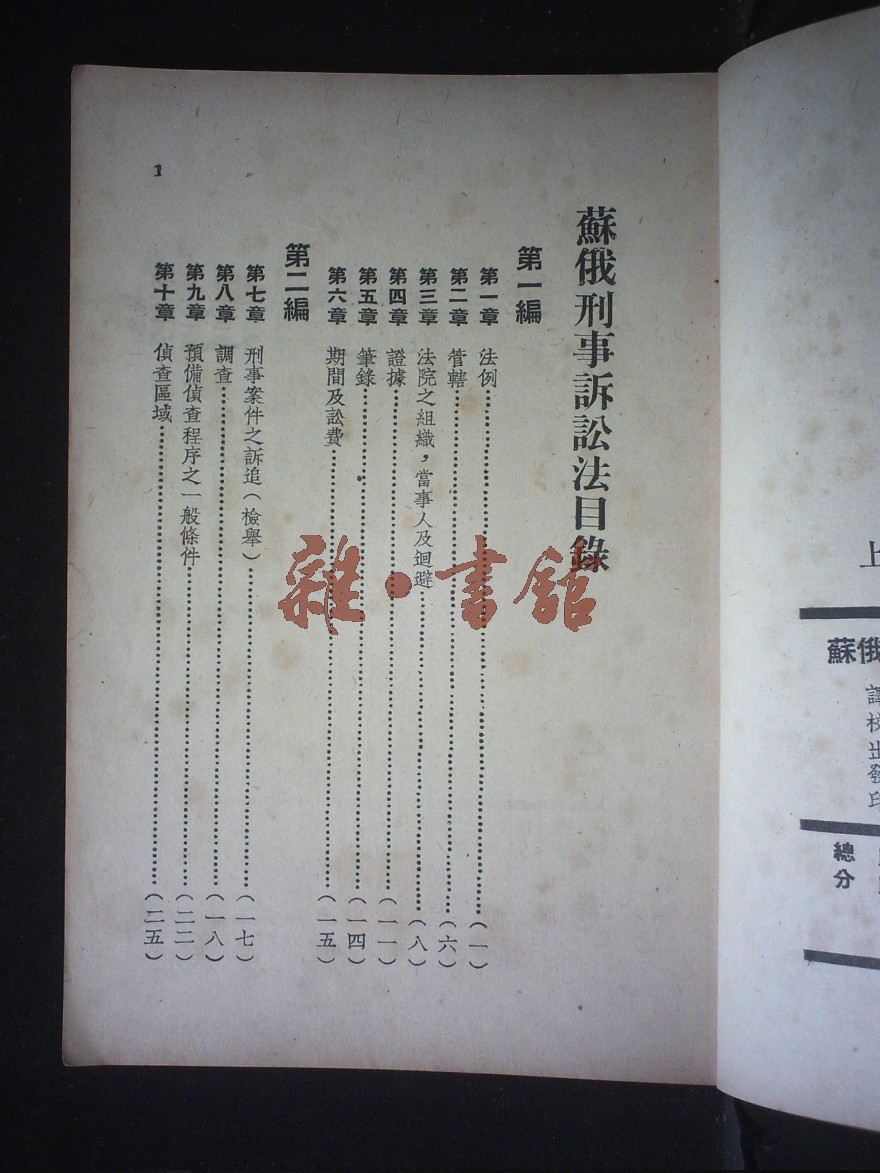 蘇俄刑事訴訟法目錄
第一編
第一章 法例(一)
第二章 管轄(六)
第三章 法院之組織,當事人及迴避(八)
第四章 證據(一一)
第五章 筆錄(一四)
第六章 期間及訟費(一五)
第二編
第七章 刑事案件之訴追(檢舉)(一七)
第八章 調查(一八)
第九章 預備偵查程序之一般條件(二二)
第十章 偵查區域(二五)
1
雜·書館
上
蘇俄
譯
校
出
發
印
總
分